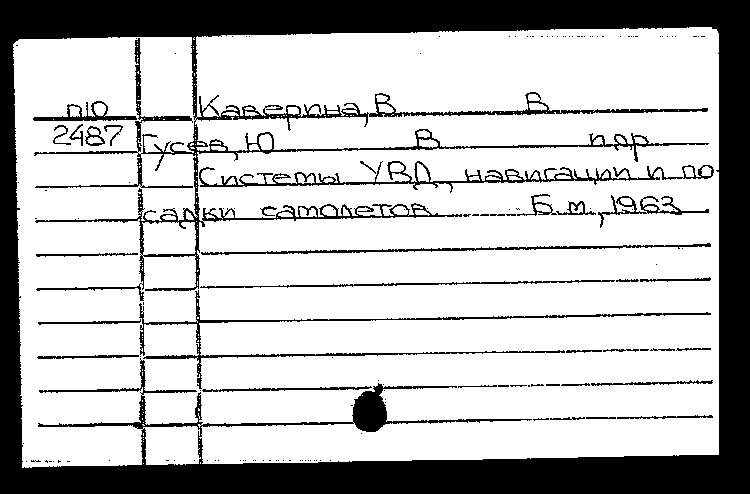 п10 Каверина, В В
2487 Гусев, Ю В и др
Системы УВД, навигации и по-
садки самолетов. Б.м., 1963